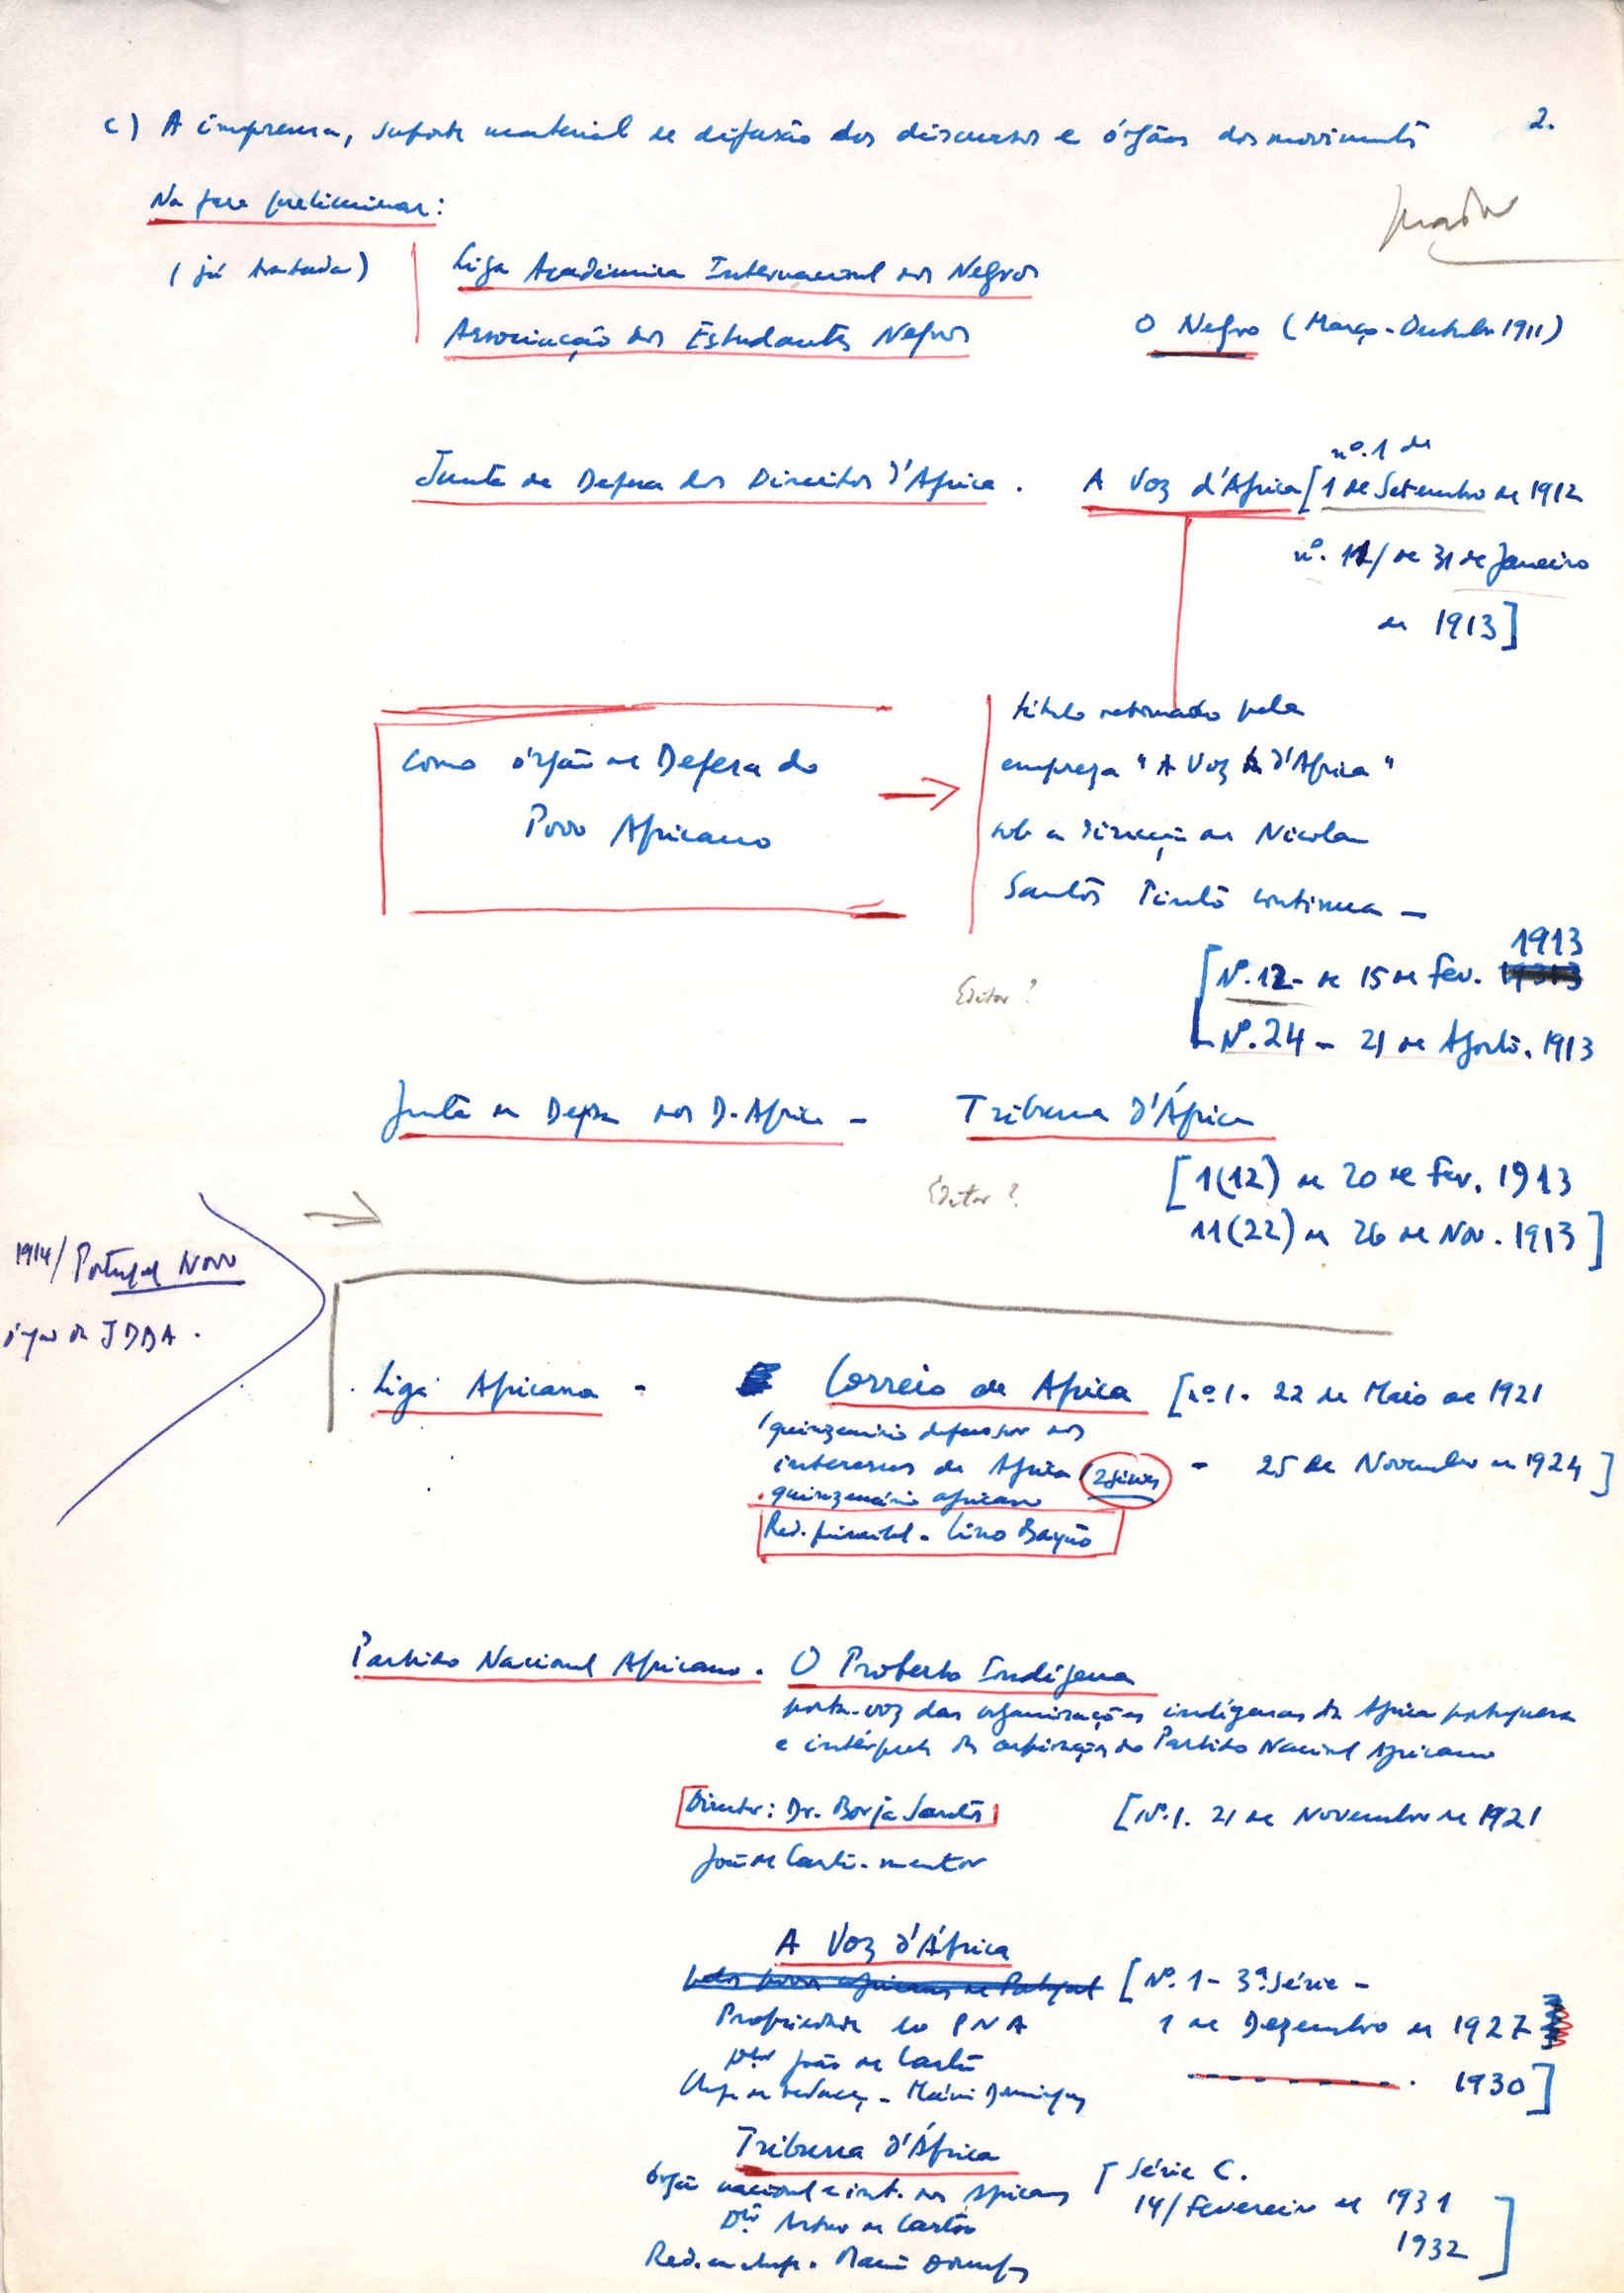 c) A imprensa, suporte material de difusão dos discursos e órgãos dos movimentos
2.
Na fase preliminar:
(já tratada)
Liga Académica Internacional dos Negros
Associação dos Estudantes Negros
O Negro (Março-Outubro 1911)
Junta de Defesa dos Direitos d'Africa.
A Voz d'Africa [
nº. 1 de
1 de Setembro de 1912
nº. 11/ de 31 de Janeiro
de 1913]
título retomado pela
empreza "A Voz d'Africa"
sob a direcção de Nicolau
Santos Pinto continua –
como órgão de Defesa do
Povo Africano
1913
[Nº. 12 - de 15 de Fev.
Nº. 24 - 21 de Agosto. 1913
Editor ?
Junta de Defesa dos D. Africa - Tribuna d'África
[1(12) de 20 de Fev. 1913
11(22) de 26 de Nov. 1913]
Editor ?
1914/ Portugal Novo
órgão da JDDA.
Liga Africana - Correio de Africa [nº 1. 22 de Maio de 1921
- 25 de Novembro de 1924]
quinzenário defensor dos
interesses de Africa / 2 séries
quinzenário africano
Red. principal - Lino Bayão
Partido Nacional Africano. O Protesto Indígena
porta-voz das organizações indígenas da Africa portuguesa
e intérprete da aspiração do Partido Nacional Africano
Director: Dr. Borja Santos
[Nº. 1. 21 de Novembro de 1921
João de Castro - mentor
A Voz d'África
[Nº. 1 - 3ª. Série -
1 de Dezembro de 1927
1930]
Propriedade do PNA
Dtor João de Castro
Chefe de redacç. - Mário Domingues
Tribuna d'África
[Série C.
14/ Fevereiro de 1931
1932]
órgão nacional e int. dos Africanos
Dtor. Artur de Castro
Red. em chefe. Mário Domingues